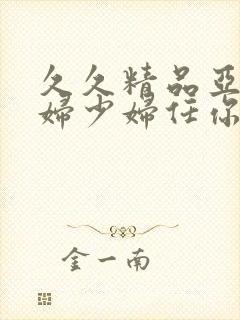 久久精品亚
婦少婦任你
金一南